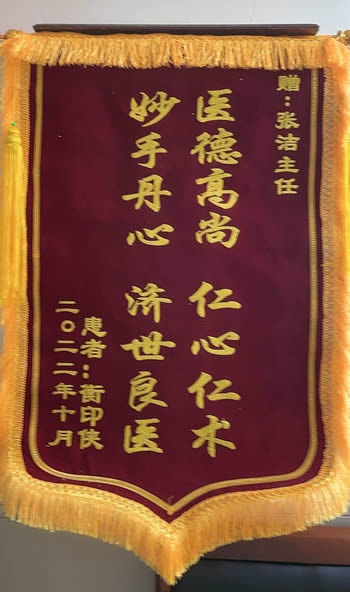 赠：张洁主任
医德高尚 仁心仁术
妙手丹心 济世良医
患者：衡印侠
二〇二二年十月